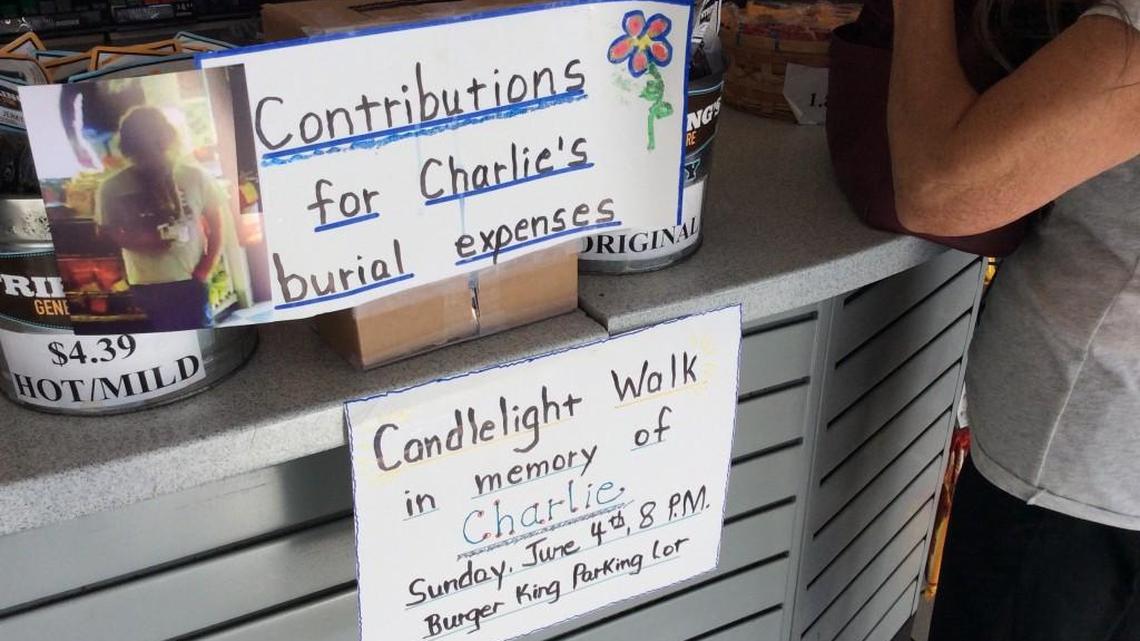 Contributions
for Charlie's
burial expenses
NG'S
RE
Y
ORIGINAL
1.
RI
GENE
$4.39
HOT/MILD
Candlelight Walk
in memory of
Charlie
Sunday, June 4th, 8 P.M.
Burger King Parking Lot